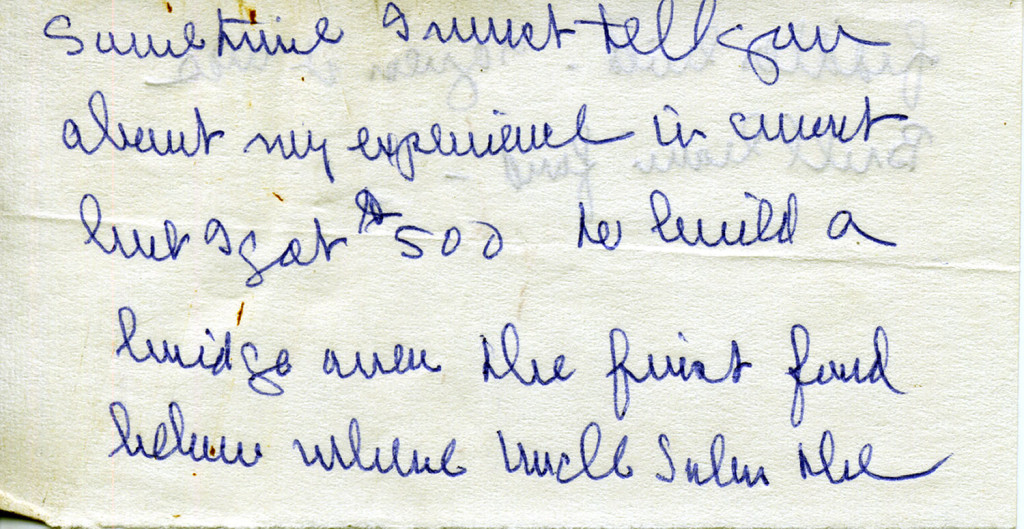 Sometime I must tell you
about my experience in court
but I got $500 to build a
bridge over the first ford
below where Uncle John the